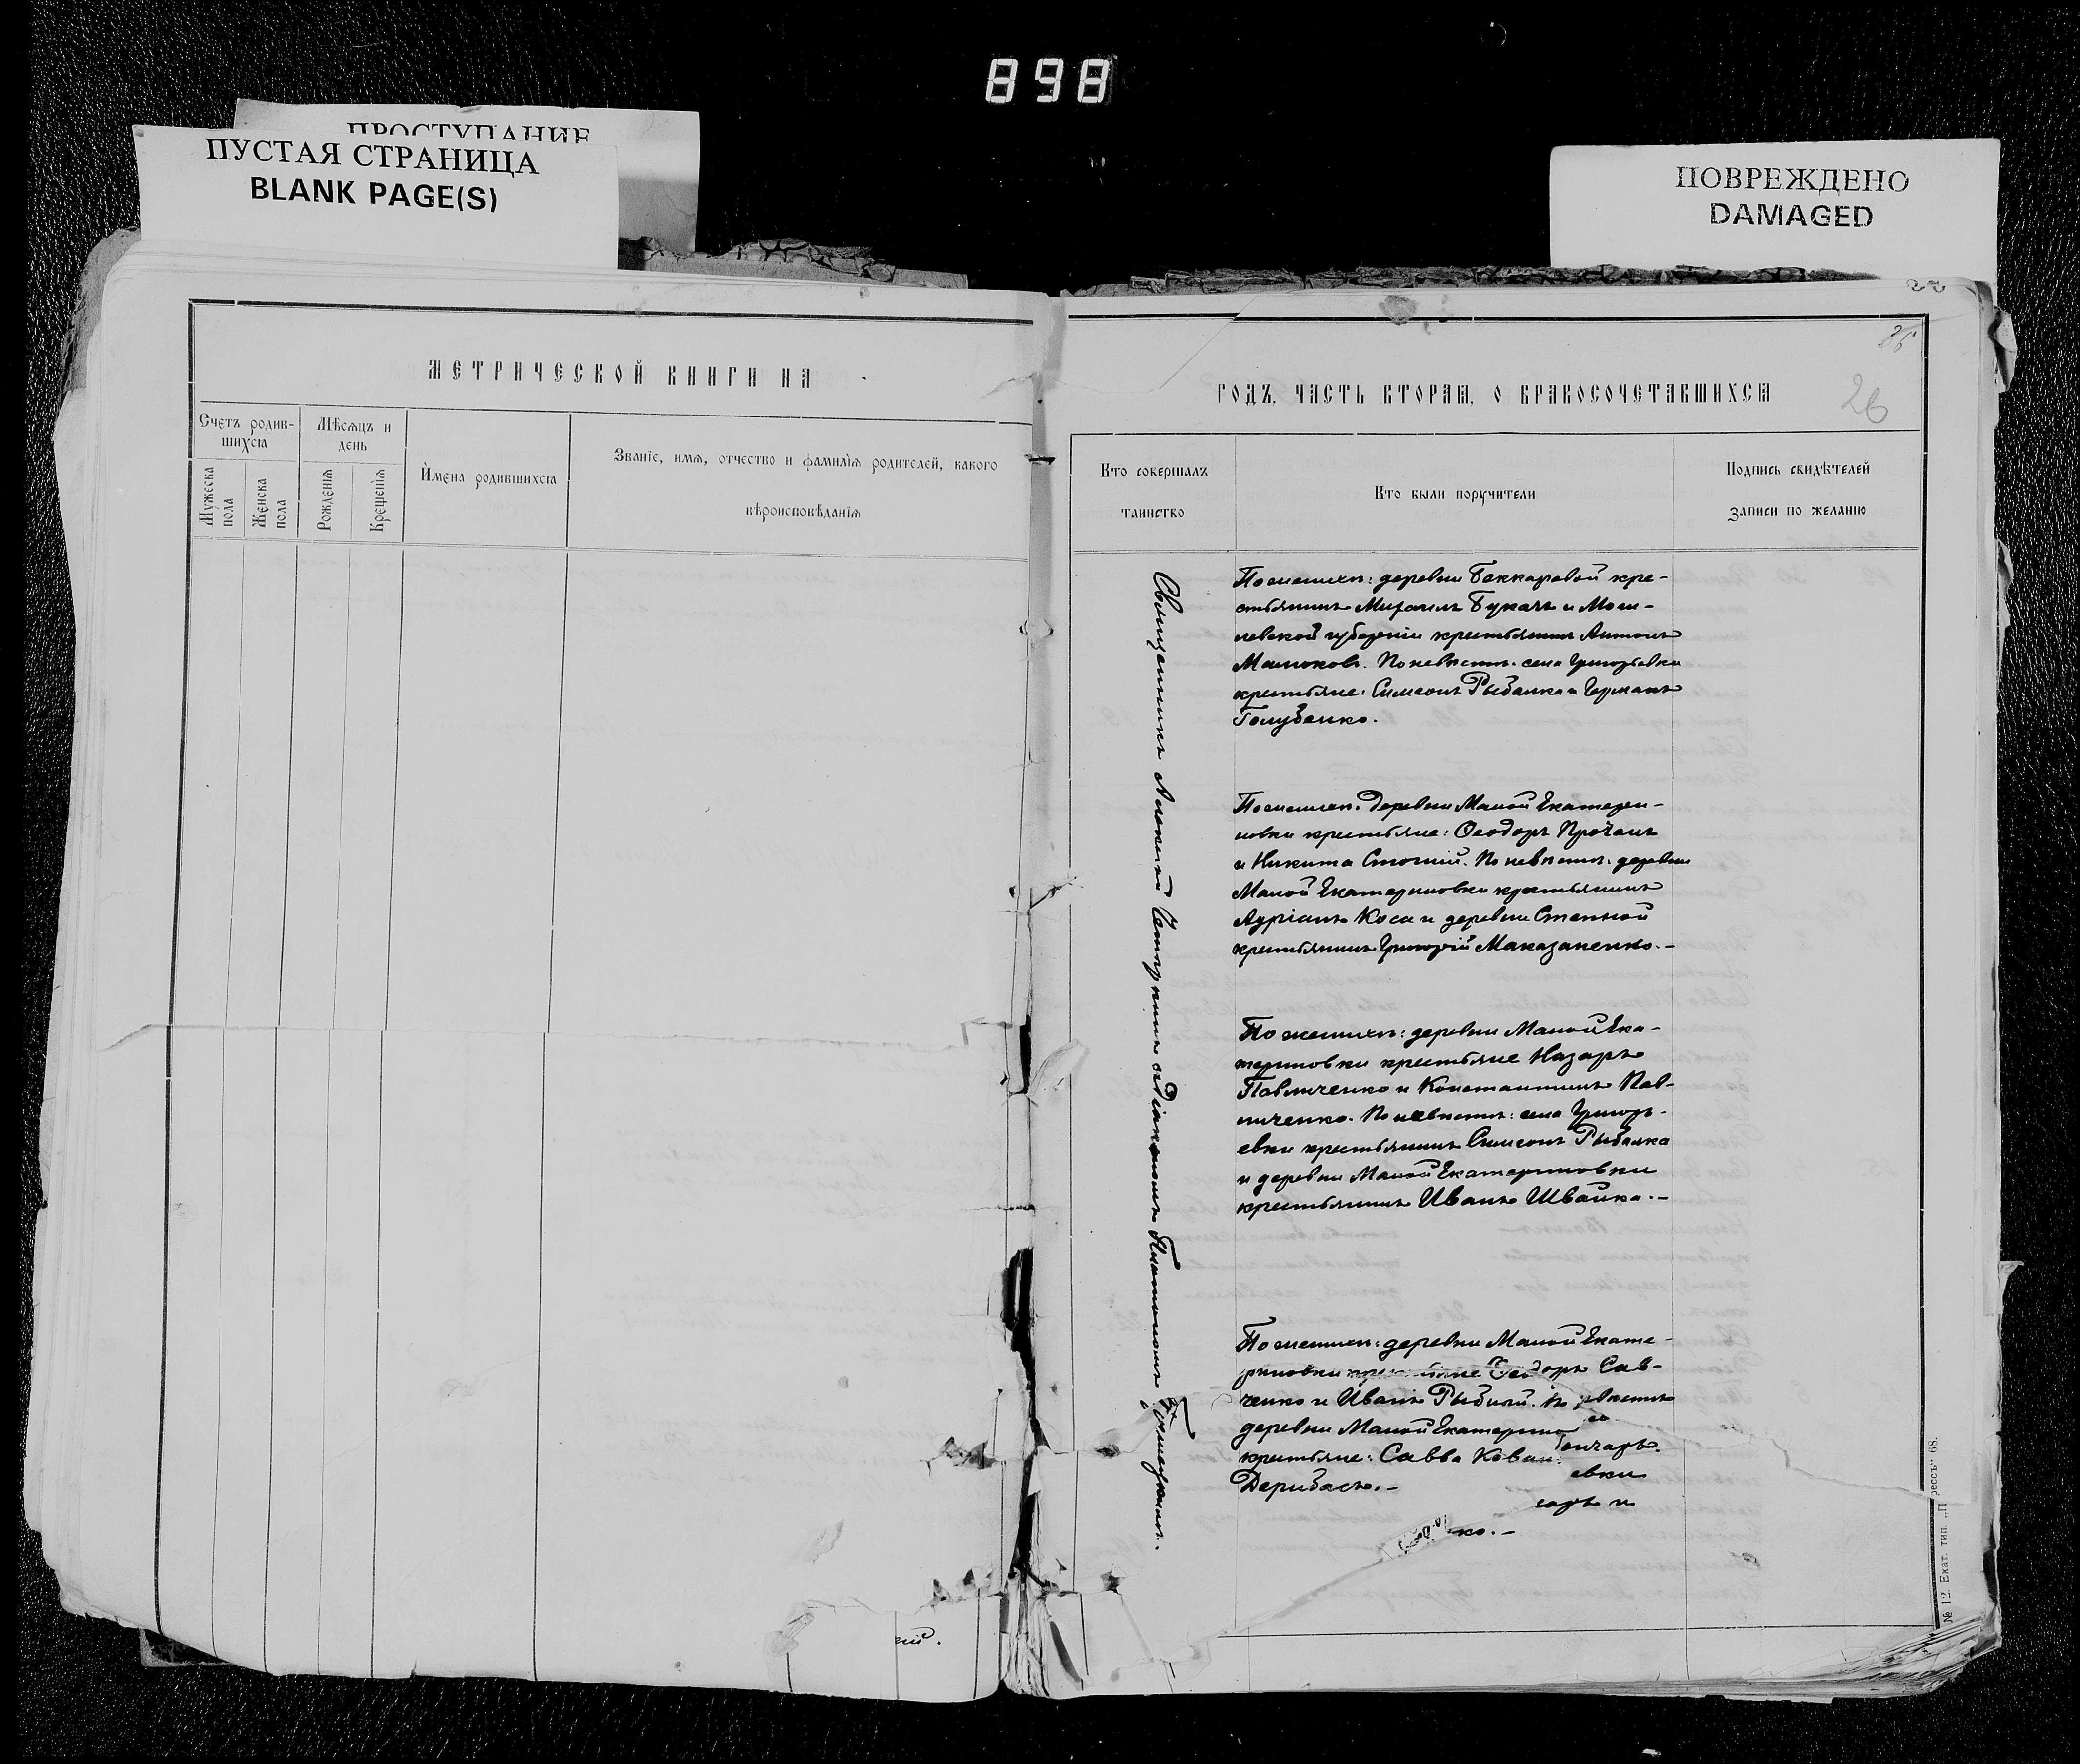 898
ПРОСТУПАНИЕ
ПУСТАЯ СТРАНИЦА
BLANK PAGE(S)
ПОВРЕЖДЕНО
DAMAGED
МЕТРИЧЕСКОЙ КНИГИ НА
Счетъ родив-
шихсѧ
Мѣсѧцъ и
день
Мужеска
пола
Женска
пола
Рожденїѧ
Крещенїѧ
Имена родившихсѧ
Званїе, имѧ, отчество и фамилїѧ родителей, какого
вѣроисповѣданїѧ
26
ГОДЪ, ЧАСТЬ ВТОРАѦ, О БРАКОСОЧЕТАВШИХСѦ
Кто совершалъ
таинство
Кто были поручители
Подпись свидѣтелей
записи по желанїю
Священникъ Алексѣй съ діакономъ Платономъ
По женихѣ: деревни Беккаревой кре-
стьянинъ Михаилъ Букачъ и Моги-
левской губерніи крестьянинъ Антонъ
Малюковъ. По невѣстѣ: села Григорьевки
крестьяне: Симеонъ Рыбалка и Германъ
Голубенко.
По женихѣ: деревни Малой Екатери-
новки крестьяне: Ѳеодоръ Прочанъ
и Никита Стогній. По невѣстѣ: деревни
Малой Екатериновки крестьянинъ
Адріанъ Коса и деревни Степной
крестьянинъ Григорій Маказаненко.-
По женихѣ: деревни Малой Ека-
териновки крестьяне Назаръ
Павличенко и Константинъ Пав-
личенко. По невѣстѣ: села Григорь-
евки крестьянинъ Симеонъ Рыбалка
и деревни Малой Екатериновки
крестьянинъ Иванъ Швайка.-
По женихѣ: деревни Малой Екате-
риновки крестьяне Ѳеодоръ Сав-
ченко и Иванъ Рыбий. По невѣстѣ
деревни Малой Екатерино
крестьяне: Савва Ковал
Дерибасъ.-
евки
саръ и
ко.-
ній.
№ 12. Екат. тип. „П рессъ" 68.